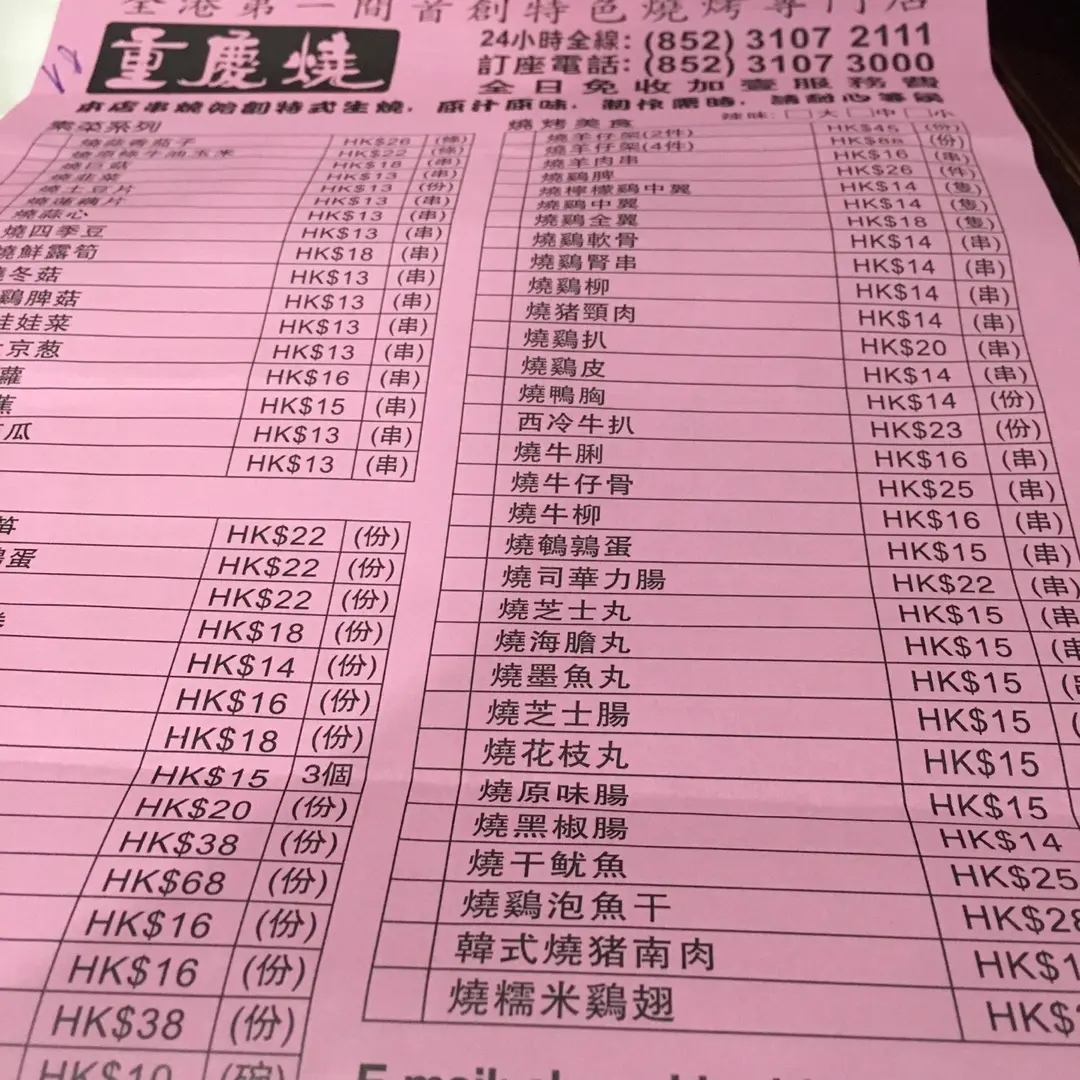 全港第一間首創特色燒烤專門店
重慶燒
24小時全線: (852) 3107 2111
訂座電話: (852) 3107 3000
全日免收加壹服務費
本店串燒始創特式生燒, 原汁原味, 製作需時, 請耐心等侯
素菜系列
燒蒜蓉茄子 HK$26 (條)
牛油玉米 HK$22 (條)
菇 HK$18 (串)
燒韭菜 HK$13 (串)
燒土豆片 HK$13 (份)
燒蓮藕片 HK$13 (串)
燒蒜心 HK$13 (串)
燒四季豆 HK$13 (串)
燒鮮露筍 HK$18 (串)
冬菇 HK$13 (串)
鷄脾菇 HK$13 (串)
娃娃菜 HK$13 (串)
京葱 HK$13 (串)
蘿 HK$16 (串)
蕉 HK$15 (串)
瓜 HK$13 (串)
HK$13 (串)
HK$22 (份)
蛋 HK$22 (份)
HK$22 (份)
HK$18 (份)
HK$14 (份)
HK$16 (份)
HK$18 (份)
HK$15 3個
HK$20 (份)
HK$38 (份)
HK$68 (份)
HK$16 (份)
HK$16 (份)
HK$38 (份)
HK$10 (碗)
燒烤美食 辣味: 大 中 小
燒羊仔架(2件) HK$45 (份)
燒羊仔架(4件) HK$88 (份)
燒羊肉串 HK$16 (串)
燒鷄脾 HK$26 (件)
燒檸檬鷄中翼 HK$14 (隻)
燒鷄中翼 HK$14 (隻)
燒鷄全翼 HK$18 (隻)
燒鷄軟骨 HK$14 (串)
燒鷄腎串 HK$14 (串)
燒鷄柳 HK$14 (串)
燒猪頸肉 HK$14 (串)
燒鷄扒 HK$20 (串)
燒鷄皮 HK$14 (串)
燒鴨胸 HK$14 (份)
西冷牛扒 HK$23 (份)
燒牛脷 HK$16 (串)
燒牛仔骨 HK$25 (串)
燒牛柳 HK$16 (串)
燒鵪鶉蛋 HK$15 (串)
燒司華力腸 HK$22 (串)
燒芝士丸 HK$15 (串
燒海膽丸 HK$15 (串
燒墨魚丸 HK$15
燒芝士腸 HK$15
燒花枝丸 HK$15
燒原味腸 HK$15
燒黑椒腸 HK$14
燒干魷魚 HK$25
燒鷄泡魚干 HK$28
韓式燒猪南肉 HK$1
燒糯米鷄翅 HK$